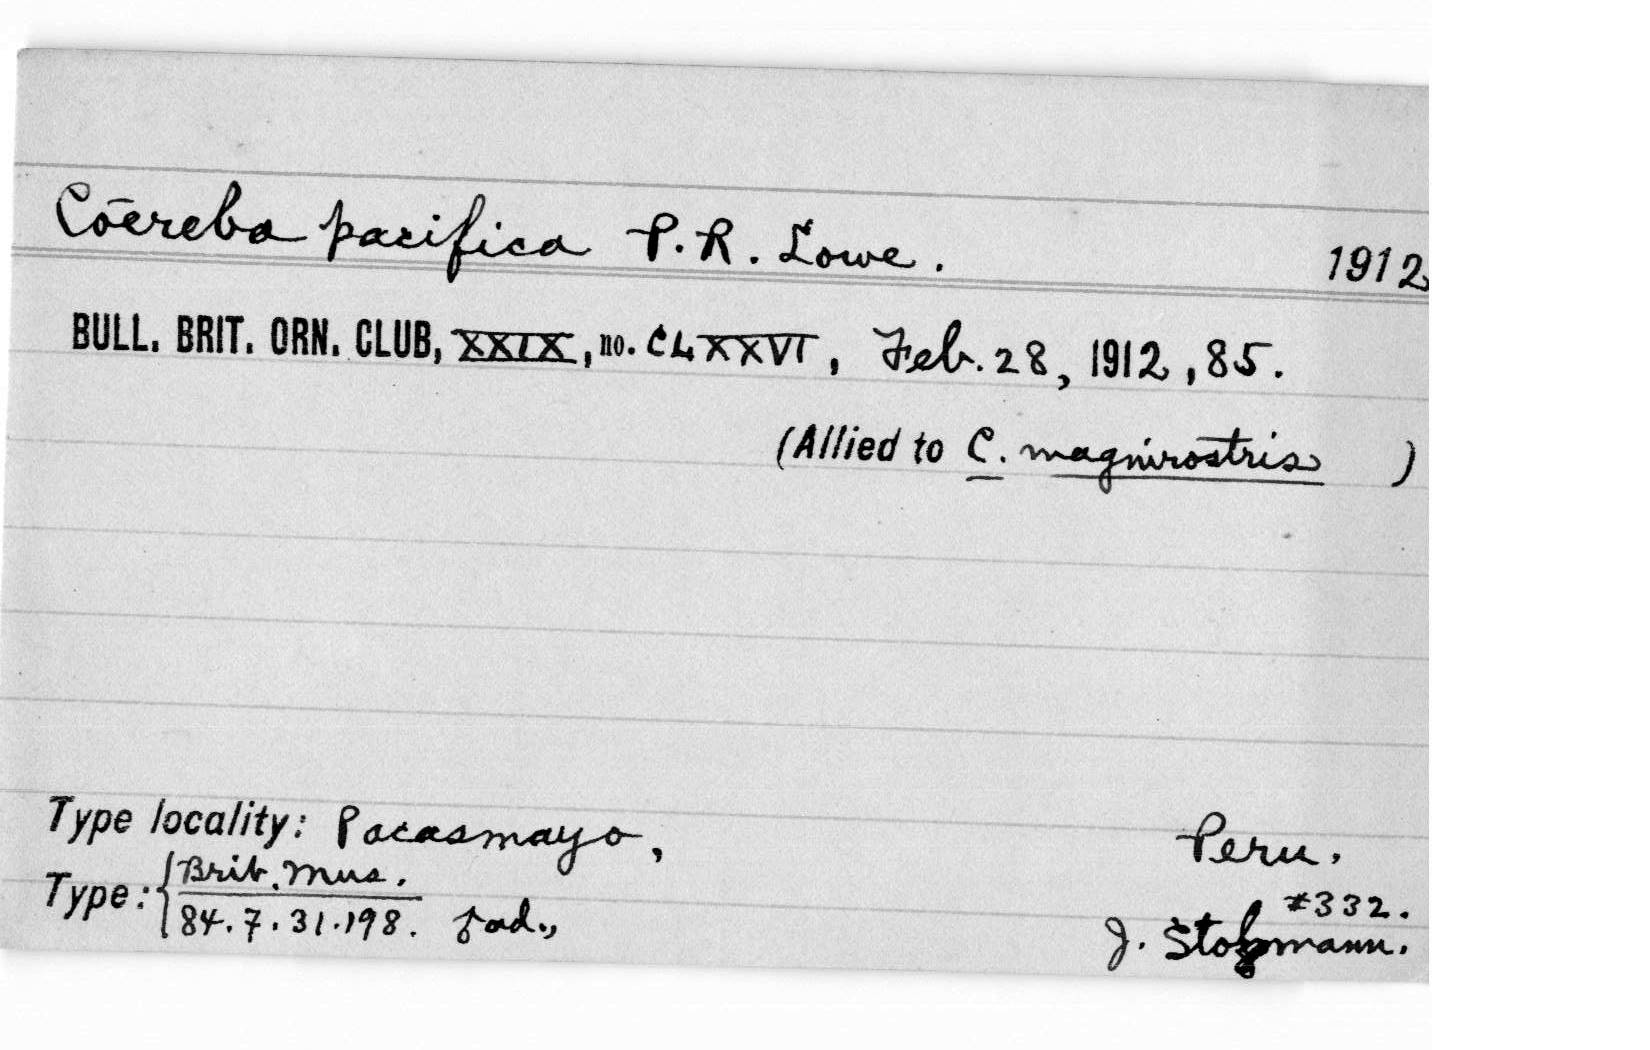 Cōereba pacifica P. R. Lowe. 1912
BULL. BRIT. ORN. CLUB, XXIX, no. CLXXVI, Feb. 28, 1912, 85.
(Allied to C. magnirostris )
Type locality: Pacasmayo, Peru.
Type: { Brit. Mus. #332.
84.7.31.198. ad., J. Stolzmann.